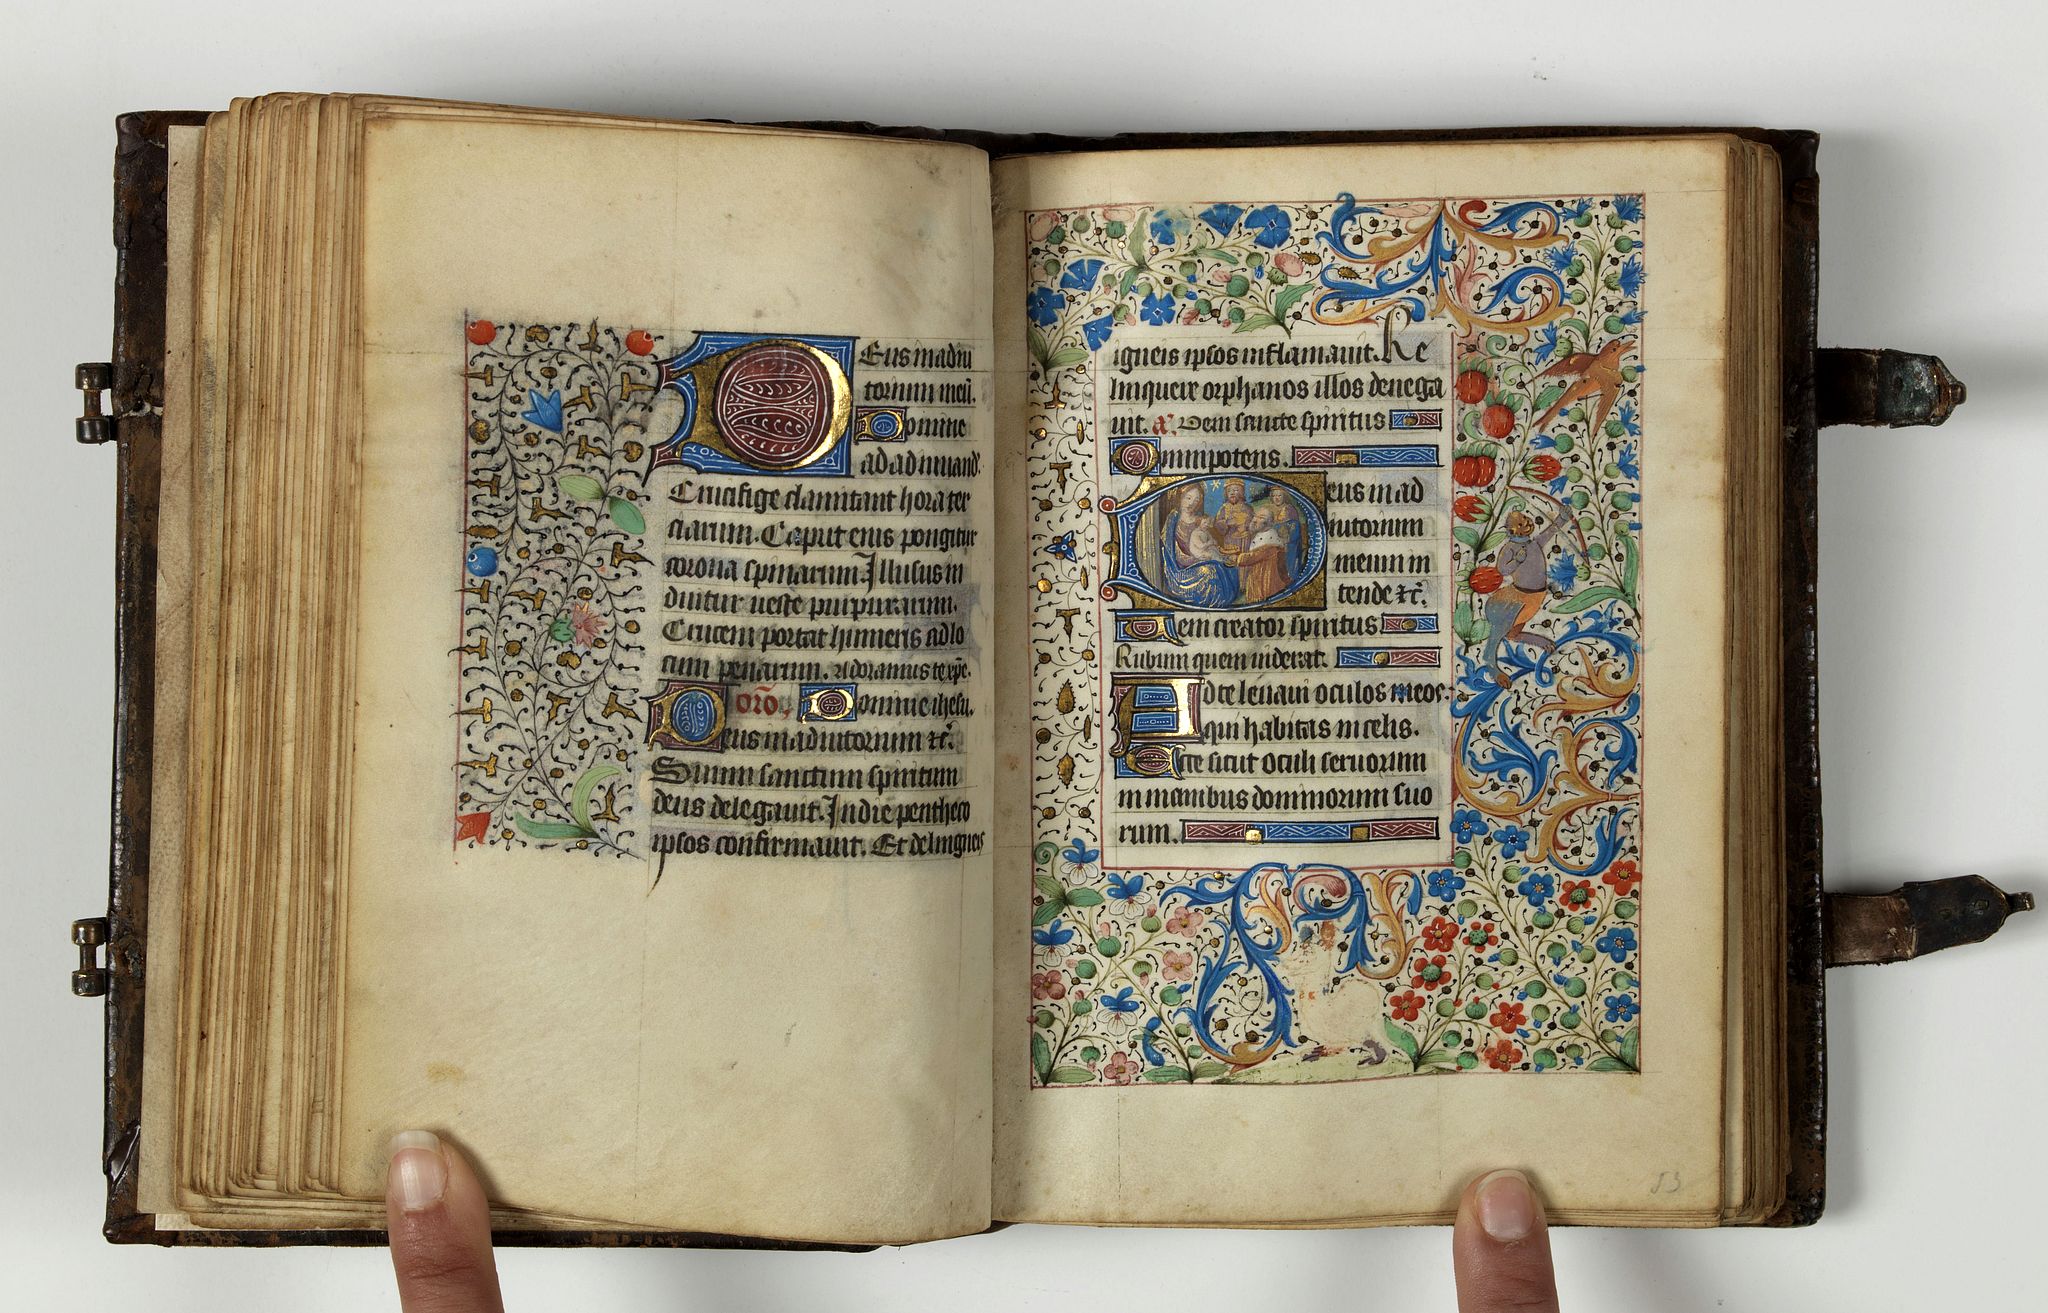 Eus in adiu
torium meū.
Domine
ad adiuuand'.
Crucifige clamitant hora ter
ciarum. Caput eius pungitur
corona spinarum. Illusus in
duitur ueste purpurarum.
Crucem portat humeris ad lo
cum penarum. Adoramus te xp̄e.
orō. Domine ihesu.
Deus in adiutorium ⁊c̄.
Suum sanctum spiritum
deus delegauit. In die pentheco
ipsos confirmauit. Et de lingueis
igneis ipsos inflamauit. Re
linqueir orphanos illos denega
uit. a. Veni sancte spiritus
Omnipotens.
Deus in ad
iutorium
meum in
tende ⁊c̄.
Veni creator spiritus
Rubum quem uiderat.
Ad te leuaui oculos meos
qui habitas in celis.
Ecce sicut oculi seruorum
in manibus dominorum suo
rum.
53